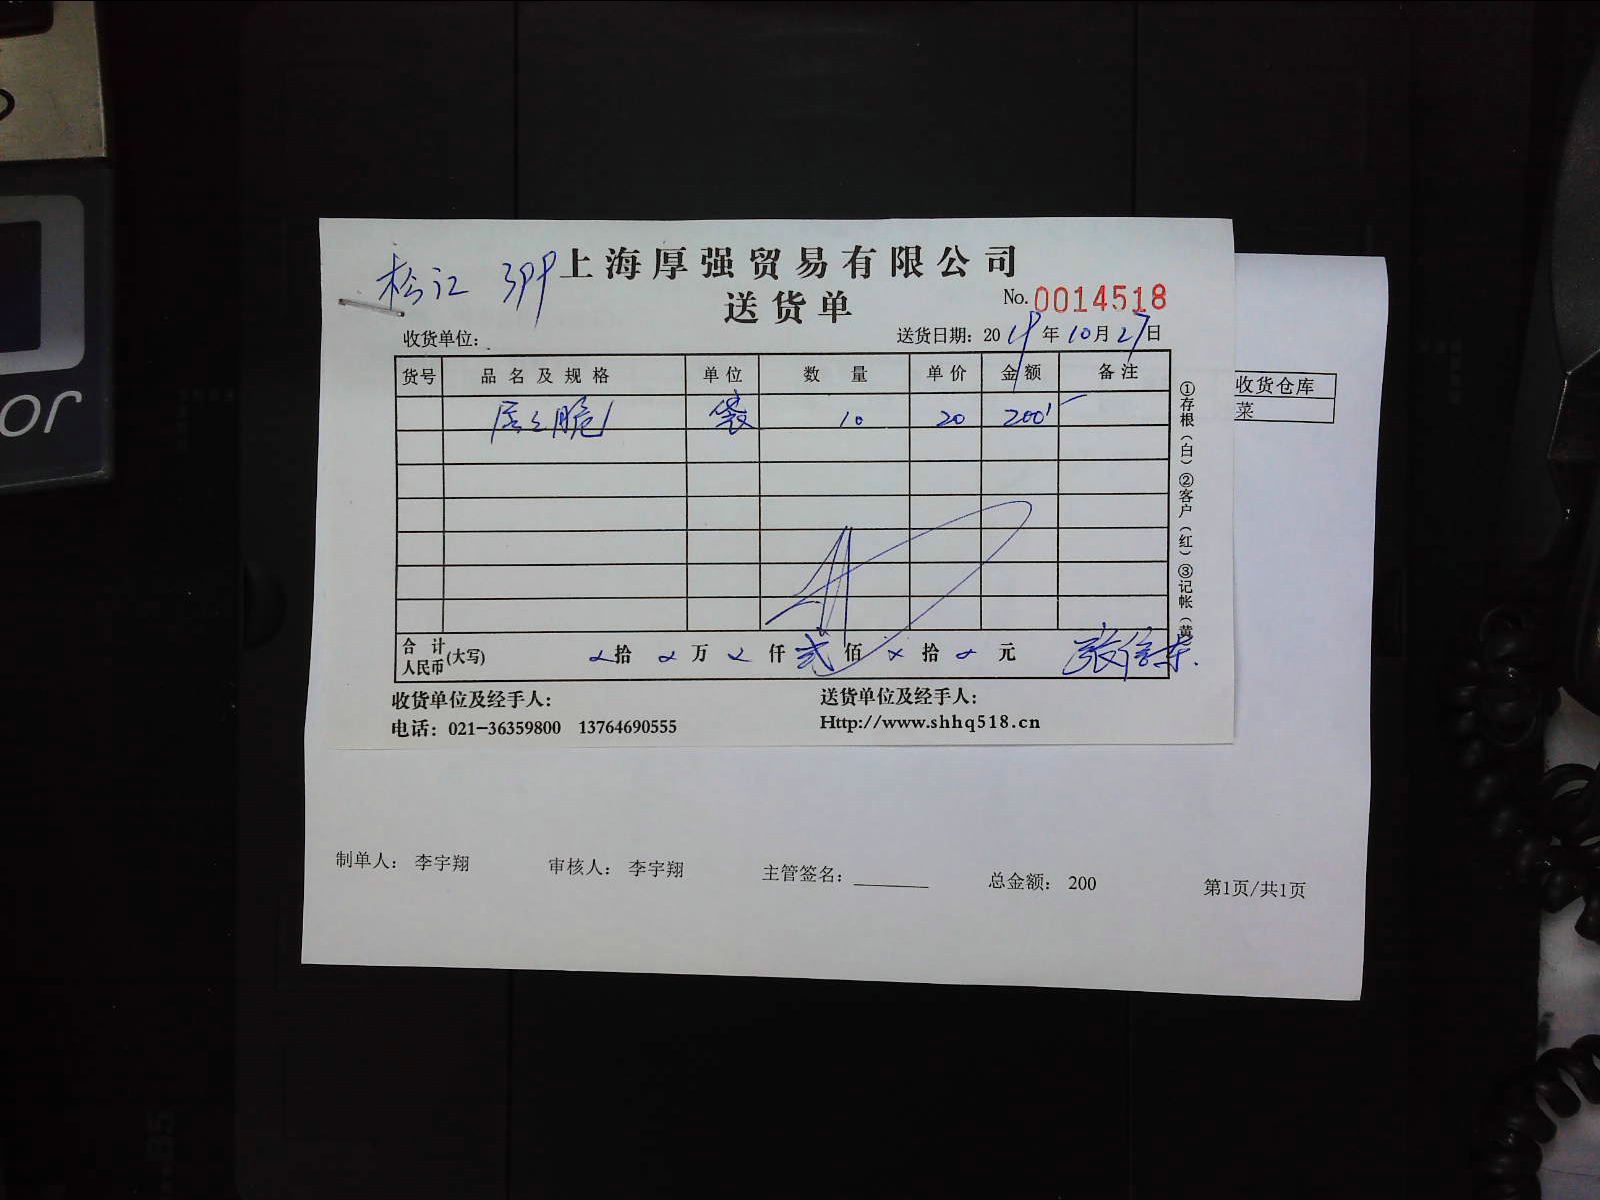 松江 上海厚强贸易有限公司
送货单 No.0014518
收货单位: 送货日期: 20 年 10月27日
货号 品名及规格 单位 数量 单价 金额 备注
脆 袋 10 20 200
合计人民币(大写) 拾 万 仟 贰 佰 拾 元
收货单位及经手人: 送货单位及经手人:
电话: 021-36359800 13764690555 Http://www.shhq518.cn
①存根(白)②客户(红)③记帐(黄
收货仓库
菜
制单人: 李宇翔 审核人: 李宇翔 主管签名: 总金额: 200 第1页/共1页
or